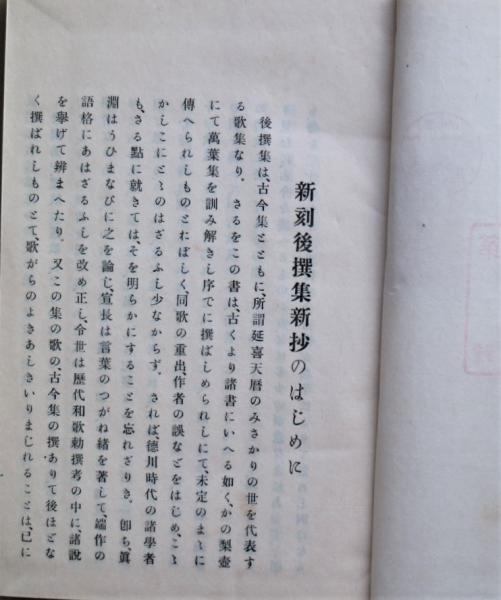 新刻後撰集新抄のはじめに
後撰集は、古今集とともに、所謂延喜天暦のみさかりの世を代表す
る歌集なり。さるをこの書は、古くより諸書にいへる如く、かの梨壺
にて萬葉集を訓み解きし序でに撰ばしめられしにて、未定のまゝに
傳へられしものとおぼしく、同歌の重出、作者の誤などをはじめ、こゝ
かしこにとゝのはざるふし少なからず。されば、德川時代の諸學者
も、さる點に就きては、そを明らかにすることを忘れざりき。卽ち、眞
淵はうひまなびに之を論じ、宣長は言葉のつがね緖を著して、端作の
語格にあはざるふしを改め正し、令世は歷代和歌勅撰考の中に、諸說
を擧げて辨まへたり。又この集の歌の、古今集の撰ありて後ほどな
く撰ばれしものとて、歌がらのよきあしきいりまじれることは、已に